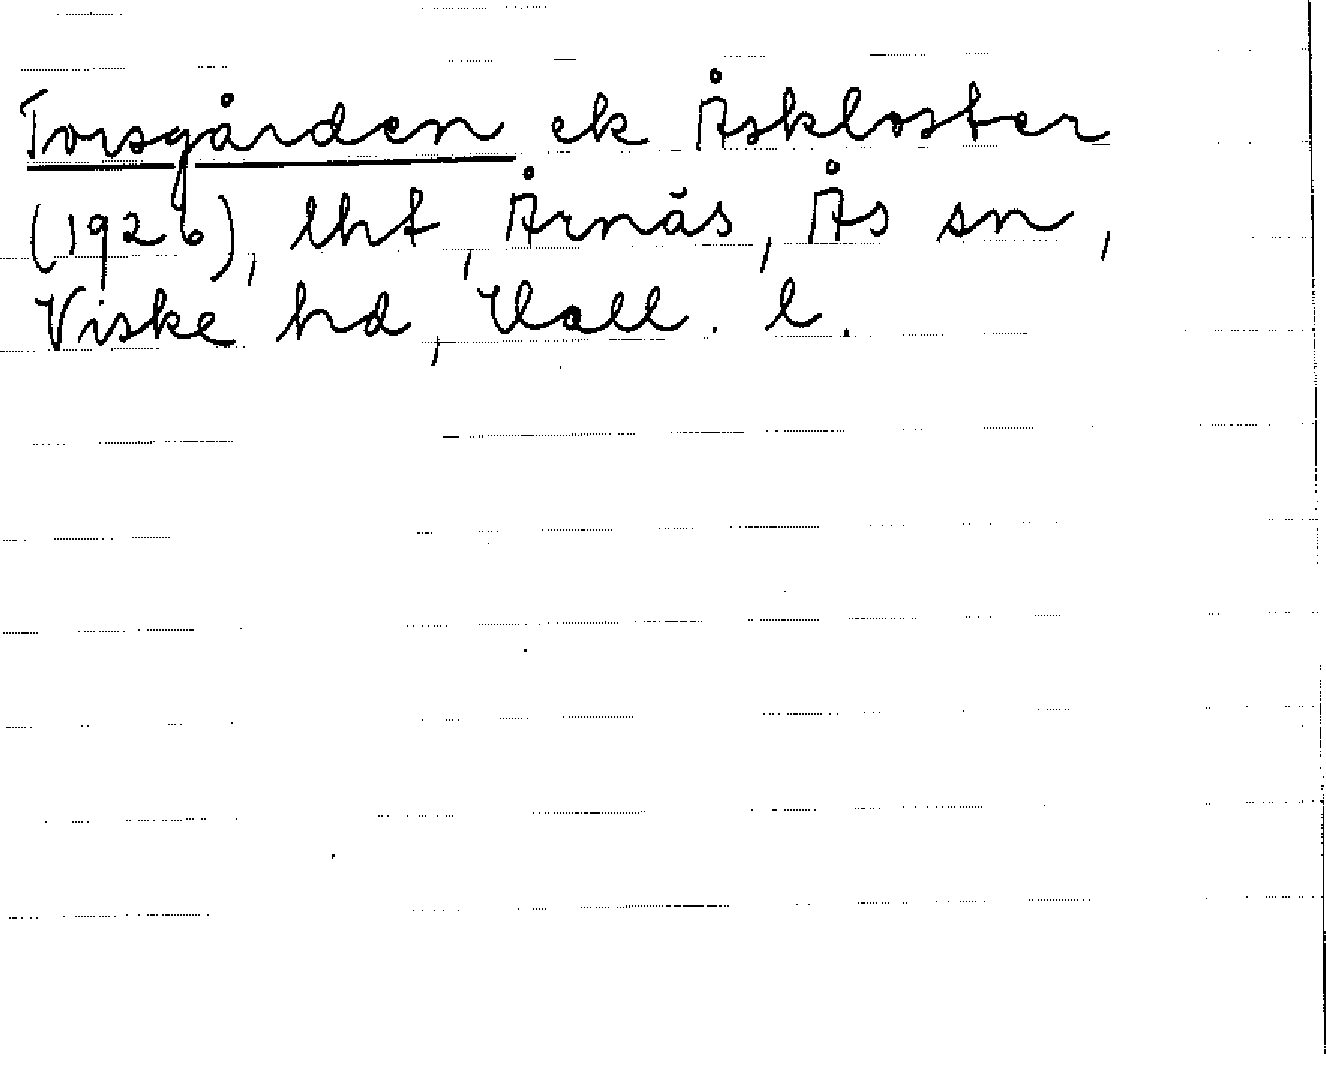 Torsgården ek Åskloster
(1926), lht, Årnäs, Ås sn,
Viske hd, Hall. l.